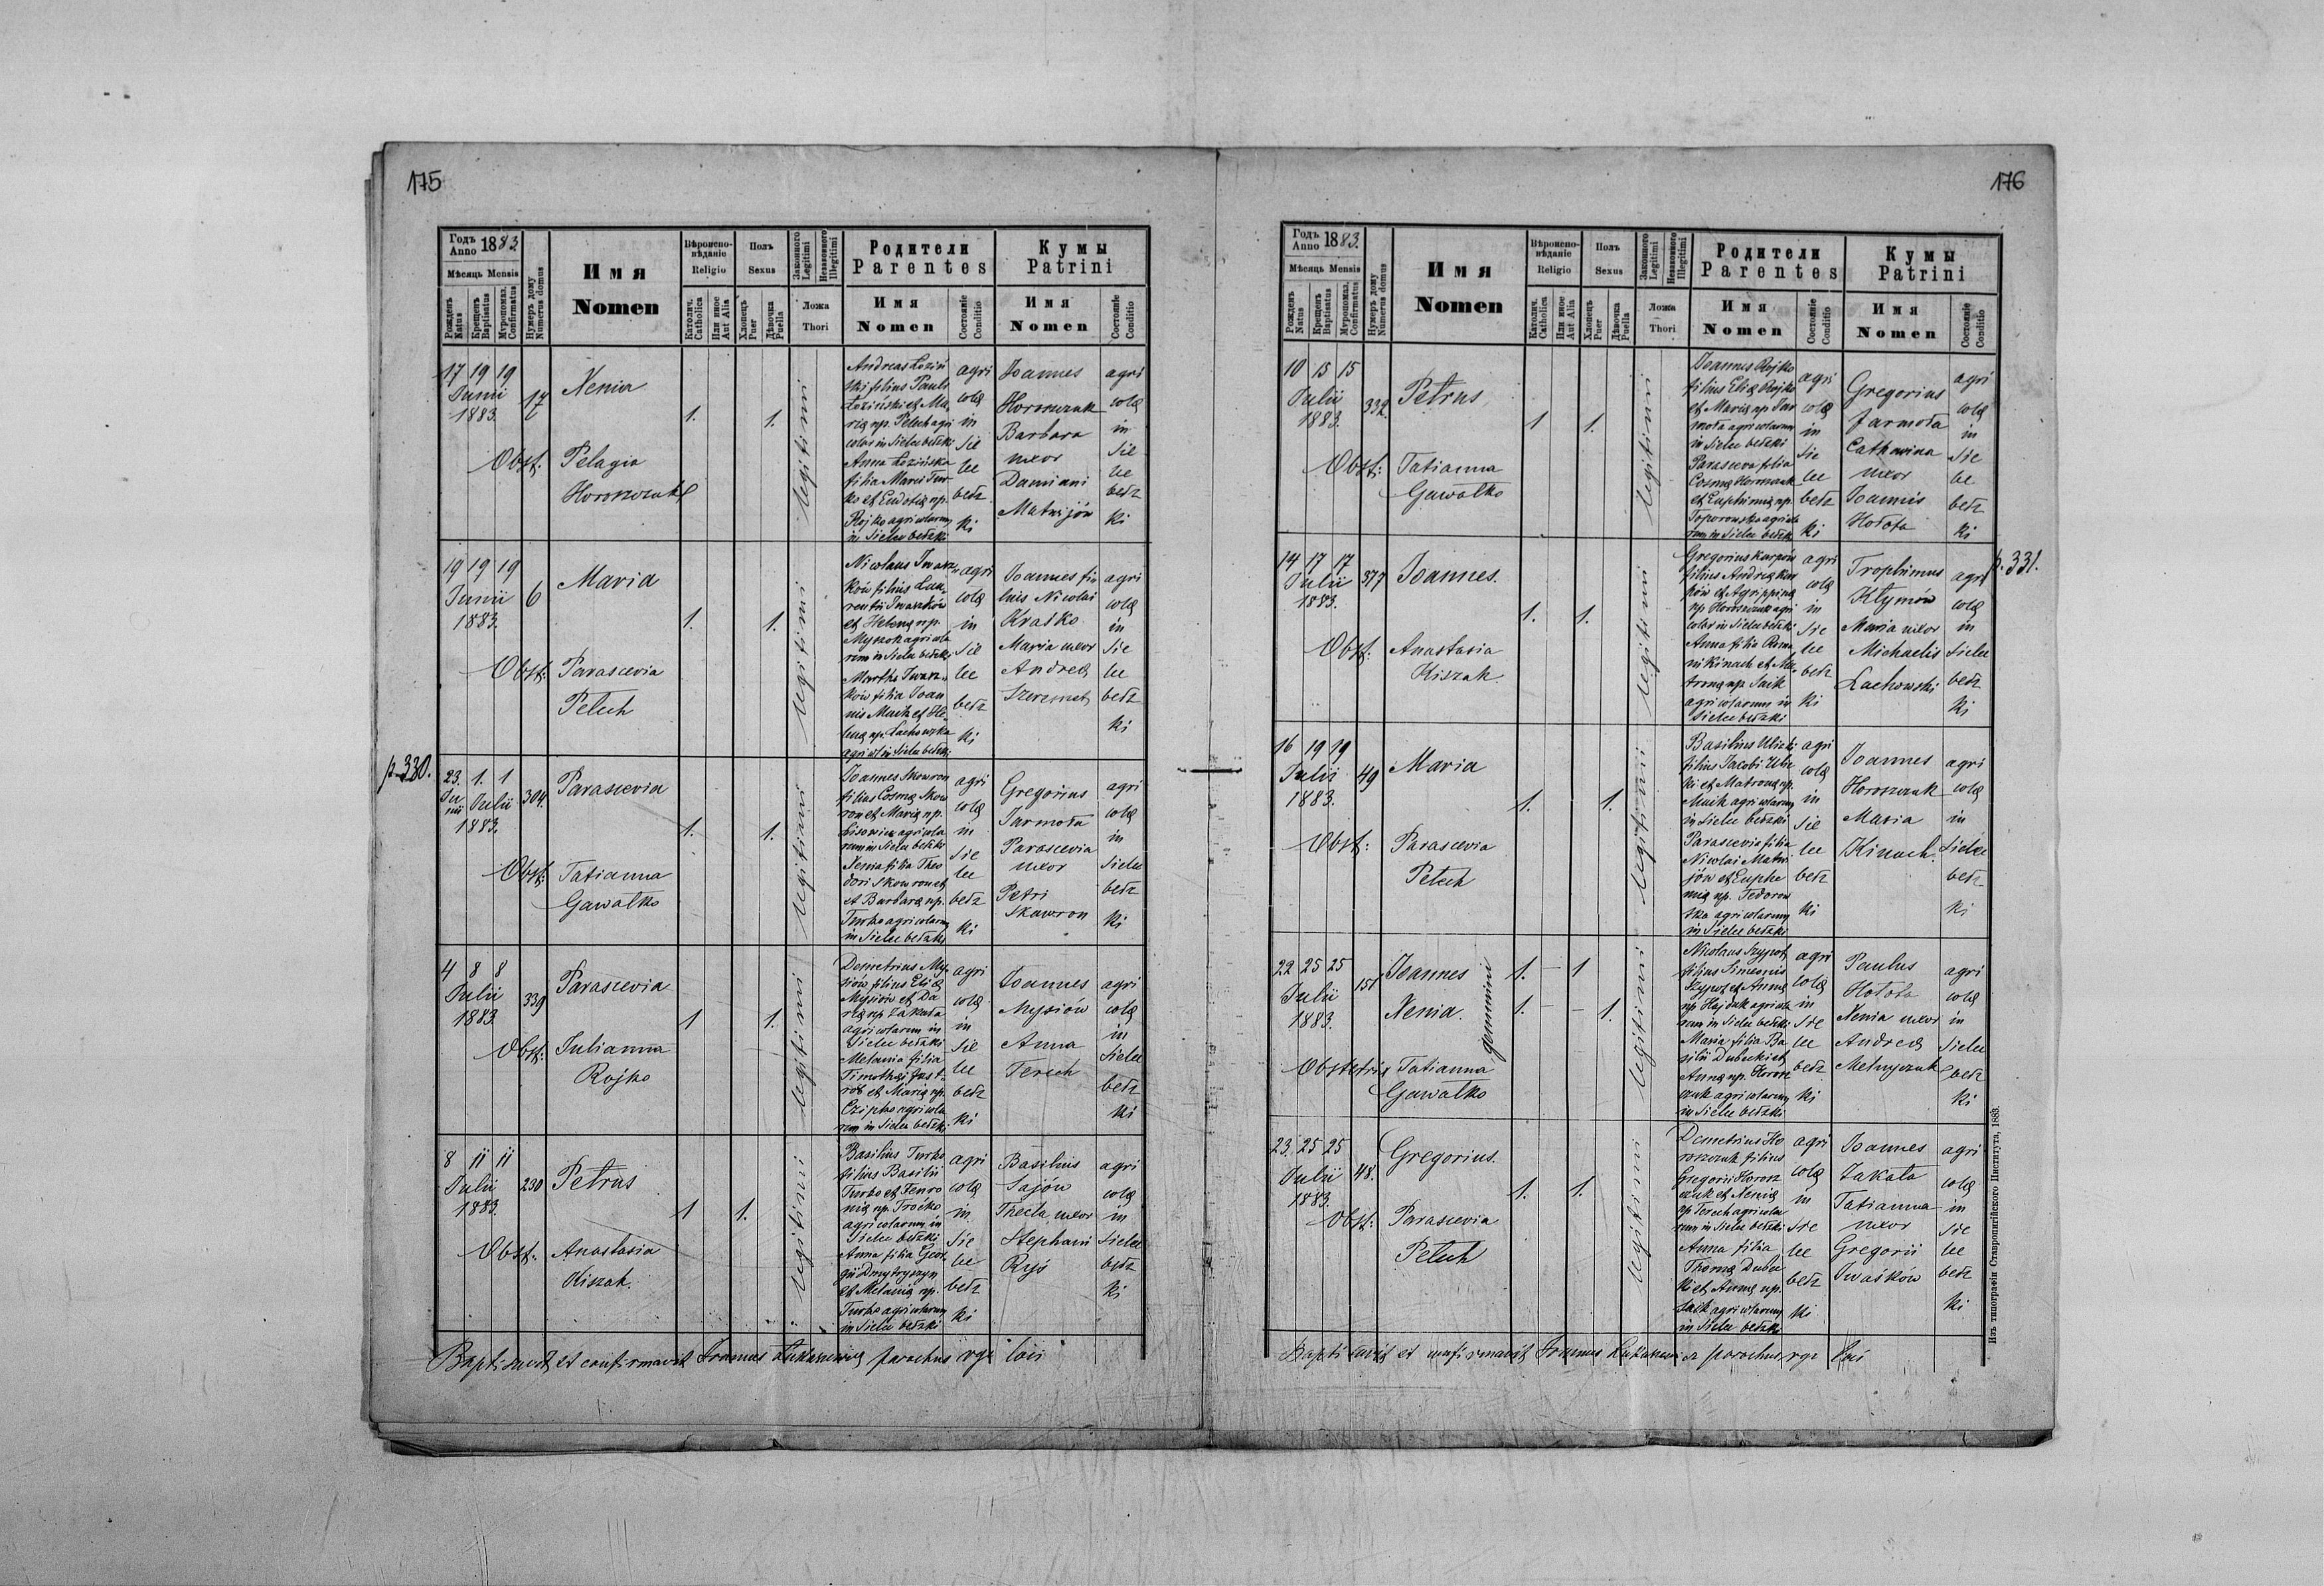 175
Годъ Anno 1883.
Мѣсяць Mensis
Рожденъ Natus
Крещенъ Baptisatus
Муропомаз. Confirmatus
Нумеръ дому Numerus domus
Имя
Nomen
Вѣроисповѣданіе
Religio
Католич. Catholica
Или иное Aut Alia
Полъ
Sexus
Хлопець Puer
Дѣвочка Puella
Законного Legitimi
Незаконного Illegitimi
Ложа
Thori
Родители
Parentes
Имя
Nomen
Состояніе Conditio
Кумы
Patrini
Имя
Nomen
Состояніе Conditio
17 19 19
Junii
1883.
17
Xenia
Obst: Pelagia
Horoszczuk
1. 1.
legitimi
Andreas Łoziń
ski filius Pauli
Łoziński et Ma
ria np. Pełech agri
colar in Sielec bełzki
Anna Łozińska
filia Marci Tur
ko et Eudotia np.
Rojko agricolarum
in Sielec bełzki
agri
colæ
in
Sie
lec
bełz
ki
Joannes
Horoszczuk
Barbara
uxor
Damiani
Matwijów
agri
colæ
in
Sie
lec
bełz
ki
19 19 19
Junii
1883.
6
Maria
Obst: Parascevia
Pełech
1. 1.
legitimi
Nicolaus Iwasz
ków filius Lau
rentii Iwaszków
et Helena np.
agricola
rum in Sielec bełzki
Martha Iwasz
ków filia Joan
nis Muck et He
lena np. Lachowska
agricol in Sielec bełzki
agri
colæ
in
Sie
lec
bełz
ki
Joannes fi
lius Nicolai
Kraśko
Maria uxor
Andreæ
Szeremet
agri
colæ
in
Sie
lec
bełz
ki
p. 330.
23. 1. 1
Ju
nii Julii
1883.
304.
Parascevia
Obst: Tatianna
Gawałko
1. 1.
legitimi
Joannes Skowron
filius Cosmæ Skow
ron et Maria np.
Lisowicz agricola
rum in Sielec bełzki
Xenia filia Theo
dori Skowron et
et Barbara np.
Turko agricolarum
in Sielec bełzki
agri
colæ
in
Sie
lec
bełz
ki
Gregorius
Jarmoła
Parascevia
uxor
Petri
Skowron
agri
colæ
in
Sielec
bełz
ki
4 8 8
Julii
1883.
339
Parascevia
Obst: Julianna
Rojko
1 1.
legitimi
Demetrius My
siów filius Eliæ
Mysiów et Da
ria np Zakała
agricolarum in
Sielec bełzki
Melania filia
Timothei
et Maria np.
Czipko agricola
rum in Sielec bełzki
agri
colæ
in
Sie
lec
bełz
ki
Joannes
Mysiów
Anna
Terech
agri
colæ
in
Sielec
bełz
ki
8 11 11
Julii
1883.
230
Petrus
Obst: Anastasia
Kiszak.
1 1.
legitimi
Basilius Turko
filius Basilii
Turko et Fenro
nia np. Troćko
agricolarum in
Sielec bełzki
Anna filia Geor
gii Dmytryszyn
et Melania np.
Turko agricolarum
in Sielec bełzki
agri
colæ
in
Sie
lec
bełz
ki
Basilius
Sajów
Thecla uxor
Stephani
Ryś
agri
colæ
in
Sielec
bełz
ki
Baptisavit et confirmavit Joannes Łukasiewicz parochus rgr loci
176
Годъ Anno 1883.
Мѣсяць Mensis
Рожденъ Natus
Крещенъ Baptisatus
Муропомаз. Confirmatus
Нумеръ дому Numerus domus
Имя
Nomen
Вѣроисповѣданіе
Religio
Католич. Catholica
Или иное Aut Alia
Полъ
Sexus
Хлопець Puer
Дѣвочка Puella
Законного Legitimi
Незаконного Illegitimi
Ложа
Thori
Родители
Parentes
Имя
Nomen
Состояніе Conditio
Кумы
Patrini
Имя
Nomen
Состояніе Conditio
10 15 15
Julii
1883.
332.
Petrus
Obst: Tatianna
Gawałko
1 1.
legitimi
Joannes Rojko
filius Eliæ Rojko
et Maria np Jar
moła agricolarum
in Sielec bełzki
Parascevia filia
Cosmæ
et Euphimia np.
Toporowska agricola
rum in Sielec bełzki
agri
colæ
in
Sie
lec
bełz
ki
Gregorius
Jarmoła
Catharina
uxor
Joannis
Hołota
agri
colæ
in
Sie
lec
bełz
ki
14 17 17
Julii
1883.
377
Joannes.
Obst: Anastasia
Kiszak.
1. 1.
legitimi
Gregorius Karpów
filius Andreæ Kar
pów et Agrippina
np Horoszczuk agri
colar in Sielec bełzki
Anna filia Roma
ni Kinach et Ma
trona np Saik
agricolarum in
Sielec bełzki
agri
colæ
in
Sie
lec
bełz
ki
Trophimus
Kłymów
Maria uxor
Michaelis
Lachowski
agri
colæ
in
Sielec
bełz
ki
p. 331.
16 19 19
Julii
1883.
49
Maria
Obst: Parascevia
Pełech
1. 1.
legitimi
Basilius Ulicki
filius Jacobi Ulic
ki et Matrona np.
agricolarum
in Sielec bełzki
Parascevia filia
Nicolai Matwi
jów et Euphe
mia np. Fedorow
ska agricolarum
in Sielec bełzki
agri
colæ
in
Sie
lec
bełz
ki
Joannes
Horoszczuk
Maria
Kinach.
agri
colæ
in
Sielec
bełz
ki
22 25 25
Julii
1883.
151
Joannes
Xenia.
gemmini
Obstetrix Tatianna
Gawałko
1. — 1
1. — 1.
legitimi
Nicolaus Szypot
filius Simeonis
Szypot et Anna
np Hajduk agricola
rum in Sielec bełzki
Maria filia Ba
silii Dubecki et
Anna np. Horosz
czuk agricolarum
in Sielec bełzki
agri
colæ
in
Sie
lec
bełz
ki
Paulus
Hołota
Xenia uxor
Andreæ
Melnyczuk
agri
colæ
in
Sielec
bełz
ki
23. 25 25
Julii
1883.
48.
Gregorius.
Obst: Parascevia
Pełech
1. 1.
legitimi
Demetrius Ho
roszczuk filius
Gregorii Horosz
czuk et Xenia
np Terech agricola
rum in Sielec bełzki
Anna filia
Thomæ Dubec
ki et Anna np.
Saik agricolarum
in Sielec bełzki
agri
colæ
in
Sie
lec
bełz
ki
Joannes
Zakała
Tatianna
uxor
Gregorii
Iwaśków
agri
colæ
in
Sie
lec
bełz
ki
Baptisavit et confirmavit Joannes Łukasiewicz parochus rgr loci
Изъ типографіи Ставропигійского Института, 1883.